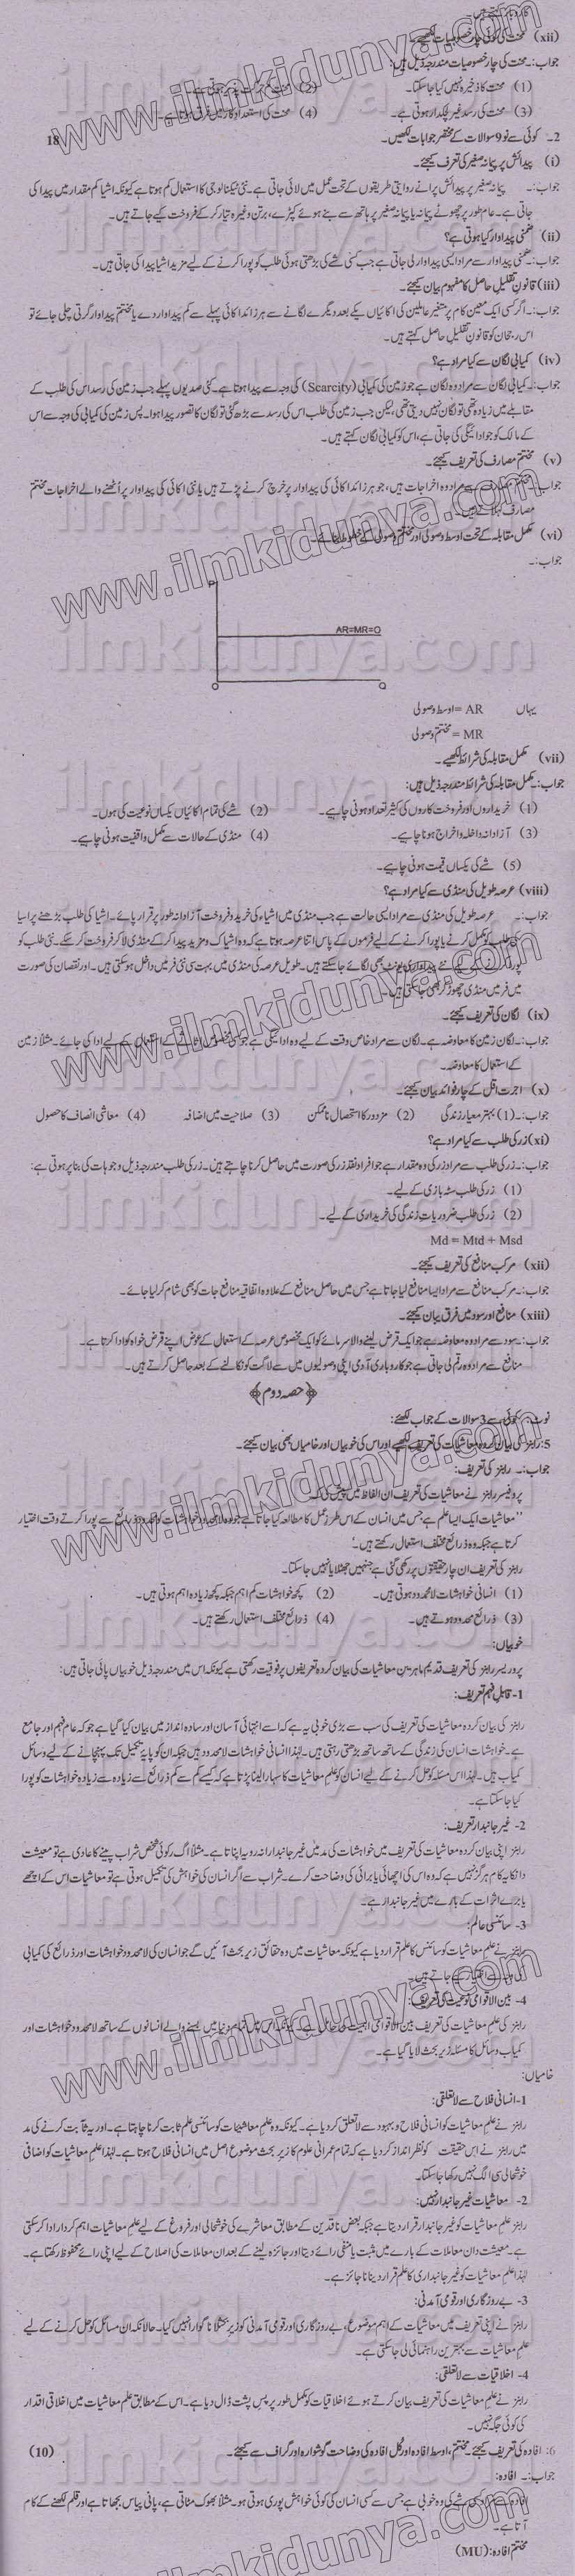 کاروبار کہتے ہیں۔
(xii) محنت کی کوئی چار خصوصیات لکھیے۔
جواب:۔ محنت کی چار خصوصیات مندرجہ ذیل ہیں:
(1) محنت کا ذخیرہ نہیں کیا جاسکتا۔
(3) محنت کی رسد غیر لچکدار ہوتی ہے۔ (4) محنت کی استعداد کار میں فرق ہوتا ہے۔
2۔ کوئی سے نو 9 سوالات کے مختصر جوابات لکھیں۔ 18
(i) پیدائش بر پیمانہ صغیر کی تعریف کیجئے۔
جواب:۔ پیمانہ صغیر پر پیدائش پرانے روایتی طریقوں کے تحت عمل میں لائی جاتی ہے۔ نئی ٹیکنالوجی کا استعمال کم ہوتا ہے کیونکہ اشیا کم مقدار میں پیدا کی
جاتی ہے۔ عام طور پر چھوٹے پیمانہ یا پیمانہ صغیر پر ہاتھ سے بنے ہوئے کپڑے، برتن وغیرہ تیار کر کے فروخت کیے جاتے ہیں۔
(ii) ضمنی پیداوار کیا ہوتی ہے؟
جواب:۔ ضمنی پیداوار سے مراد ایسی پیداوار لی جاتی ہے جب کسی شے کی بڑھتی ہوئی طلب کو پورا کرنے کے لیے مزید اشیا پیدا کی جاتی ہیں۔
(iii) قانون تقلیل حاصل کا مفہوم بیان کیجئے۔
جواب:۔ اگر کسی ایک معین کام پر متغیر عاملین کی اکائیاں یکے بعد دیگرے لگانے سے ہر زائد اکائی پہلے سے کم پیداوار دے یا مختتم پیداوار گرتی چلی جائے تو
اس رجحان کو قانون تقلیل حاصل کہتے ہیں۔
(iv) کمیابی لگان سے کیا مراد ہے؟
جواب:۔ کمیابی لگان سے مراد وہ لگان ہے جو زمین کی کمیابی (Scarcity) کی وجہ سے پیدا ہوتا ہے۔ کئی صدیوں پہلے جب زمین کی رسد اس کی طلب کے
مقابلے میں زیادہ تھی تو لگان نہیں دیتی تھی، لیکن جب زمین کی طلب اس کی رسد سے بڑھ گئی تو لگان کا تصور پیدا ہوا۔ پس زمین کی کمیابی کی وجہ سے اس
کے مالک کو جو ادائیگی کی جاتی ہے، اس کو کمیابی لگان کہتے ہیں۔
(v) مختتم مصارف کی تعریف کیجئے۔
جواب:۔ مختتم مصارف سے مراد وہ اخراجات ہیں، جو ہر زائد اکائی کی پیداوار پر خرچ کرنے پڑتے ہیں یا نئی اکائی کی پیداوار پر اُٹھنے والے اخراجات مختتم
مصارف کہلاتے ہیں۔
(vi) مکمل مقابلہ کے تحت اوسط وصولی اور مختتم وصولی کے خطوط بنائیے۔
جواب:۔
P
AR=MR=O
O Q
یہاں AR = اوسط وصولی
MR = مختتم وصولی
(vii) مکمل مقابلہ کی شرائط لکھیے۔
جواب:۔ مکمل مقابلہ کی شرائط مندرجہ ذیل ہیں:
(1) خریداروں اور فروخت کاروں کی کثیر تعداد ہونی چاہیے۔ (2) شے کی تمام اکائیاں یکساں نوعیت کی ہوں۔
(3) آزادانہ داخلہ و اخراج ہونا چاہیے۔ (4) منڈی کے حالات سے مکمل واقفیت ہونی چاہیے۔
(5) شے کی یکساں قیمت ہونی چاہیے۔
(viii) عرصہ طویل کی منڈی سے کیا مراد ہے؟
جواب:۔ عرصہ طویل کی منڈی سے مراد ایسی حالت ہے جب منڈی میں اشیاء کی خرید و فروخت آزادانہ طور پر قرار پائے۔ اشیا کی طلب بڑھنے پر اسیا
کی طلب کو مکمل کرنے یا پورا کرنے کے لیے فرموں کے پاس اتنا عرصہ ہوتا ہے کہ وہ اشیا کو مزید پیدا کر کے منڈی لا کر فروخت کر سکے۔ نئی طلب کو
پورا کرنے کے لیے نئے پیداواری یونٹ بھی لگائے جاسکتے ہیں۔ طویل عرصہ کی منڈی میں بہت سی نئی فرمیں داخل ہو سکتی ہیں۔ اور نقصان کی صورت
میں فرمیں منڈی چھوڑ کر بھی جاسکتی ہیں۔
(ix) لگان کی تعریف کیجئے۔
جواب:۔ لگان زمین کا معاوضہ ہے۔ لگان سے مراد خاص وقت کے لیے وہ ادائیگی ہے جو کسی مخصوص اثاثے کے استعمال کے لیے ادا کی جائے۔ مثلاً زمین
کے استعمال کا معاوضہ۔
(x) اجرت اقل کے چار فوائد بیان کیجئے۔
جواب:۔ (1) بہتر معیار زندگی (2) مزدور کا استحصال ناممکن (3) صلاحیت میں اضافہ (4) معاشی انصاف کا حصول
(xi) زر کی طلب سے کیا مراد ہے؟
جواب:۔ زر کی طلب سے مراد زر کی وہ مقدار ہے جو افراد نقد زر کی صورت میں حاصل کرنا چاہتے ہیں۔ زر کی طلب مندرجہ ذیل وجوہات کی بنا پر ہوتی ہے:
(1) زر کی طلب سٹہ بازی کے لیے۔
(2) زر کی طلب ضروریات زندگی کی خریداری کے لیے۔
Md = Mtd + Msd
(xii) مرکب منافع کی تعریف کیجئے۔
جواب:۔ مرکب منافع سے مراد ایسا منافع لیا جاتا ہے جس میں حاصل منافع کے علاوہ اتفاقیہ منافع جات کو بھی شام کر لیا جائے۔
(xiii) منافع اور سود میں فرق بیان کیجئے۔
جواب:۔ سود سے مراد وہ معاوضہ ہے جو ایک قرض لینے والا سرمائے کو ایک مخصوص عرصہ کے استعمال کے عوض اپنے قرض خواہ کو ادا کرتا ہے۔
منافع سے مراد وہ رقم لی جاتی ہے جو کاروباری آدمی اپنی وصولیوں میں سے لاگت کو نکالنے کے بعد حاصل کرتے ہیں۔
﴿حصہ دوم﴾
نوٹ:۔ کوئی سے 3 سوالات کے جواب لکھئے:
5: رابنز کی بیان کردہ معاشیات کی تعریف لکھیے اور اس کی خوبیاں اور خامیاں بھی بیان کیجئے۔
جواب:۔ رابنز کی تعریف:
پروفیسر رابنز نے معاشیات کی تعریف ان الفاظ میں پیش کی کہ
"معاشیات ایک ایسا علم ہے جس میں انسان کے اس طرز عمل کا مطالعہ کیا جاتا ہے جو وہ لامحدود خواہشات کو محدود ذرائع سے پورا کرتے وقت اختیار
کرتا ہے جبکہ وہ ذرائع مختلف استعمال رکھتے ہیں۔'
رابنز کی تعریف ان چار حقیقتوں پر رکھی گئی ہے جنہیں جھٹلایا نہیں جاسکتا۔
(1) انسانی خواہشات لامحدود ہوتی ہیں۔ (2) کچھ خواہشات کم اہم جبکہ کچھ زیادہ اہم ہوتی ہیں۔
(3) ذرائع محدود ہوتے ہیں۔ (4) ذرائع مختلف استعمال رکھتے ہیں۔
خوبیاں:
پروریسر رابنز کی تعریف قدیم ماہرین معاشیات کی بیان کردہ تعریفوں پر فوقیت رکھتی ہے کیونکہ اس میں مندرجہ ذیل خوبیاں پائی جاتی ہیں:
1- قابل فہم تعریف:
رابنز کی بیان کردہ معاشیات کی تعریف کی سب سے بڑی خوبی یہ ہے کہ اسے انتہائی آسان اور سادہ انداز میں بیان کیا گیا ہے جو کہ عام فہم اور جامع
ہے۔ خواہشات انسان کی زندگی کے ساتھ ساتھ بڑھتی رہتی ہیں۔ لہٰذا انسانی خواہشات لامحدود ہیں جبکہ ان کو پایہ تکمیل تک پہنچانے کے لیے وسائل
کمیاب ہیں۔ لہٰذا اس مسئلہ کو حل کرنے کے لیے انسان کو علم معاشیات کا سہارا لینا پڑتا ہے کہ کیسے کم سے کم ذرائع سے زیادہ سے زیادہ خواہشات کو پورا
کیا جاسکتا ہے۔
2- غیر جانبدار تعریف:
رابنز اپنی بیان کردہ معاشیات کی تعریف میں خواہشات کی مد میں غیر جانبدارانہ رویہ اپناتا ہے۔ مثلاً اگر کوئی شخص شراب پینے کا عادی ہے تو معیشت
دان کا یہ کام ہرگز نہیں ہے کہ وہ اس کی اچھائی یا برائی کی وضاحت کرے۔ شراب سے اگر انسان کی خواہش کی تکمیل ہوتی ہے تو معاشیات اس کے اچھے
یا برے اثرات کے بارے میں غیر جانبدار ہے۔
3- سائنسی عالم:
رابنز نے علم معاشیات کو سائنس کا علم قرار دیا ہے کیونکہ معاشیات میں وہ حقائق زیر بحث آئیں گے جو انسان کی لامحدود خواہشات اور ذرائع کی کمیابی
4- بین الاقوامی نوعیت کی تعریف:
رابنز کی علم معاشیات کی تعریف بین الاقوامی اہمیت کی حامل ہے۔ کیونکہ اس میں تمام دنیا میں بسنے والے انسانوں کے ساتھ لامحدود خواہشات اور
کمیاب وسائل کا مسئلہ زیر بحث لایا گیا ہے۔
خامیاں:
1- انسانی فلاح سے لاتعلقی:
رابنز نے علم معاشیات کو انسانی فلاح و بہبود سے لاتعلق کر دیا ہے۔ کیونکہ وہ علم معاشیات کو سائنسی علم ثابت کرنا چاہتا ہے۔ اور یہ ثابت کرنے کی مد
میں رابنز نے اس حقیقت کو نظر انداز کر دیا ہے کہ تمام عمرانی علوم کا زیر بحث موضوع اصل میں انسانی فلاح ہوتا ہے۔ لہٰذا علم معاشیات کو اضافی
خوشحالی سی الگ نہیں رکھا جاسکتا۔
2- معاشیات غیر جانبدار نہیں:
رابنز علم معاشیات کو غیر جانبدار قرار دیتا ہے جبکہ بعض ناقدین کے مطابق معاشرے کی خوشحالی اور فروغ کے لیے علم معاشیات اہم کردار ادا کر سکتی
ہے۔ معیشت دان معاملات کے بارے میں مثبت یا منفی رائے دیتا اور جائزہ لینے کے بعد ان معاملات کی اصلاح کے لیے اپنی رائے محفوظ رکھتا ہے۔
لہٰذا علم معاشیات کو غیر جانبداری کا علم قرار دینا ناجائز ہے۔
3- بے روزگاری اور قومی آمدنی:
رابنز نے اپنی تعریف میں معاشیات کے اہم موضوع، بے روزگاری اور قومی آمدنی کو زیر بحث لانا گوارا نہیں کیا۔ حالانکہ ان مسائل کو حل کرنے کے لیے
علم معاشیات سے بہترین راہنمائی لی جاسکتی ہے۔
4- اخلاقیات سے لاتعلقی:
رابنز نے علم معاشیات کی تعریف بیان کرتے ہوئے اخلاقیات کو مکمل طور پر پس پشت ڈال دیا ہے۔ اس کے مطابق علم معاشیات میں اخلاقی اقدار
کی کوئی جگہ نہیں۔
6: افادہ کی تعریف کیجئے۔ مختتم، اوسط افادہ اور کل افادہ کی وضاحت گوشوارہ اور گراف سے کیجئے۔ (10)
جواب:۔ افادہ:
افادہ سے مراد کسی شے کی وہ خوبی ہے جس سے کسی انسان کی کوئی خواہش پوری ہوتی ہو۔ مثلاً بھوک مٹاتی ہے، پانی پیاس بجھاتا ہے اور قلم لکھنے کے کام
آتا ہے۔
مختتم افادہ: (MU)
www.ilmkidunya.com